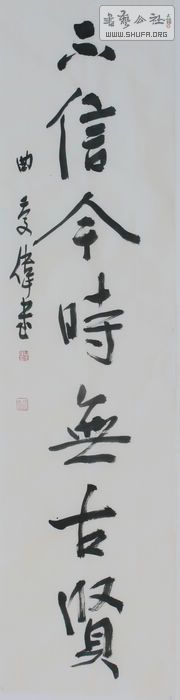 不信今時無古賢
曲文偉書
書藝公社
WWW.SHUFA.ORG